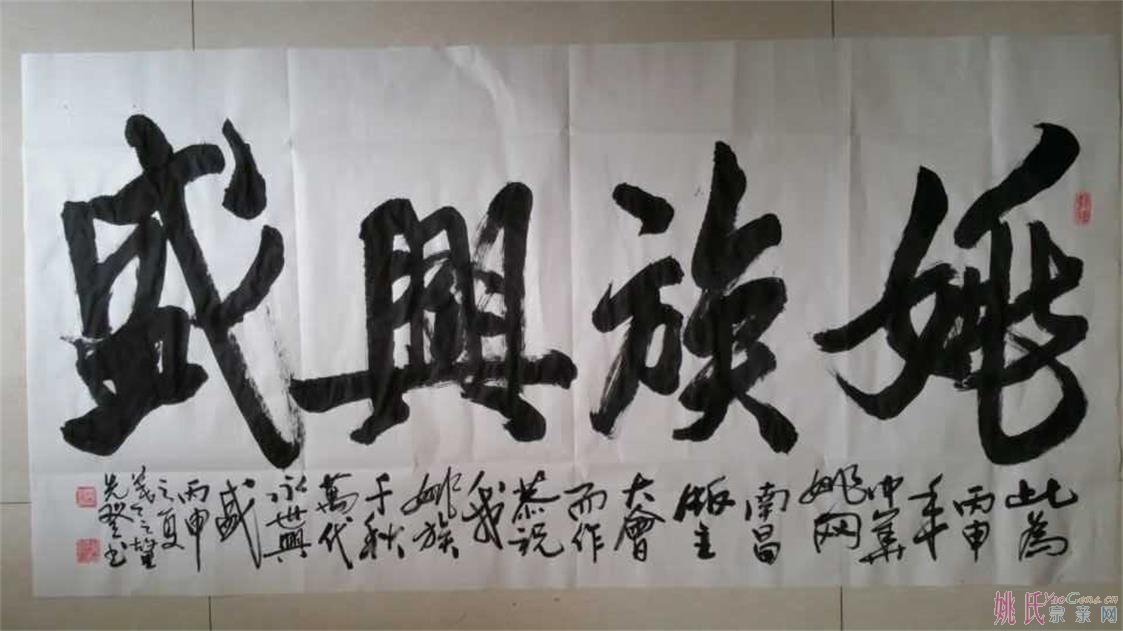 姚族興盛
此為
丙申
年
中華
姚网
南昌
版主
大會
而作
恭祝
我
姚族
千秋
萬代
永世興
盛
丙申
之夏
姚氏宗亲网
YaoGens.cn